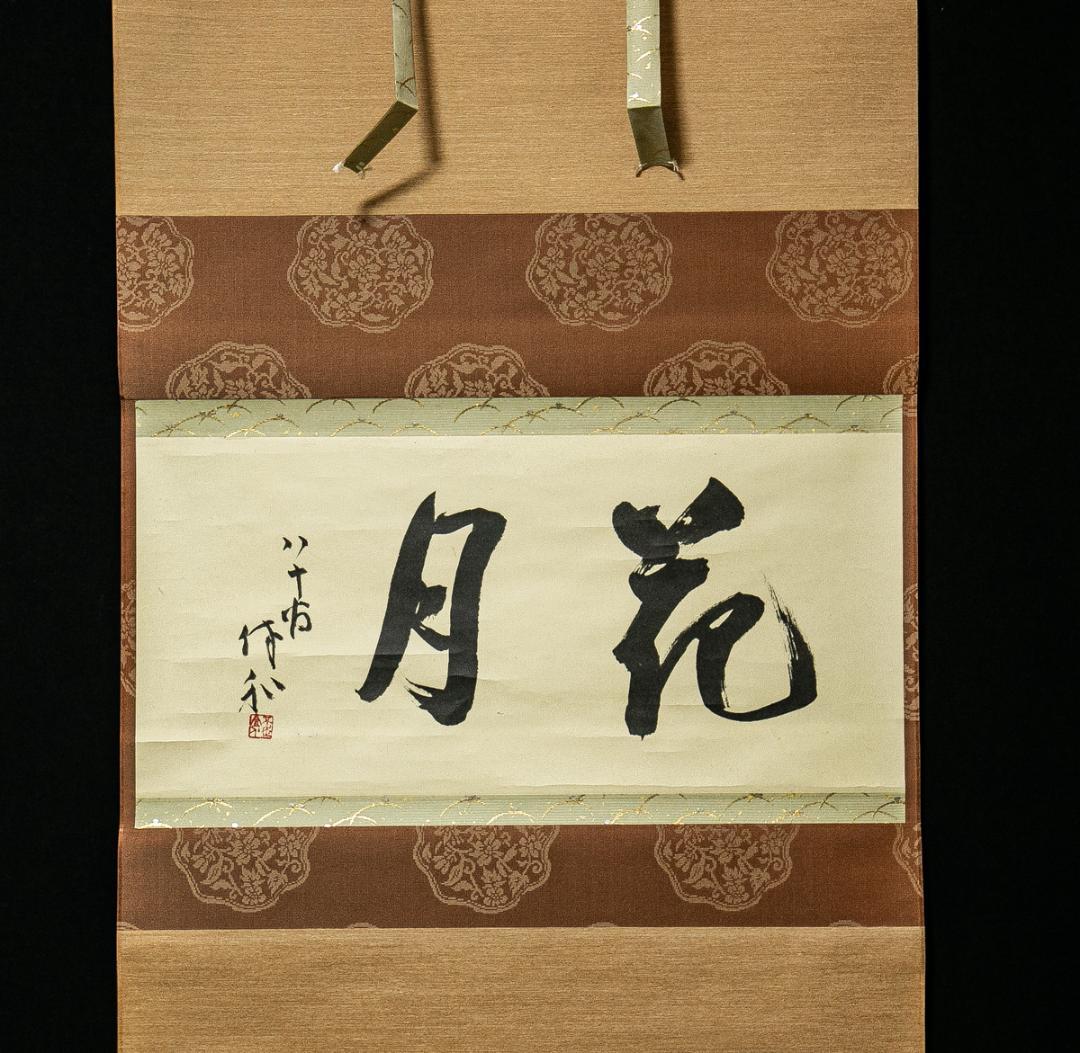 花月
八十翁